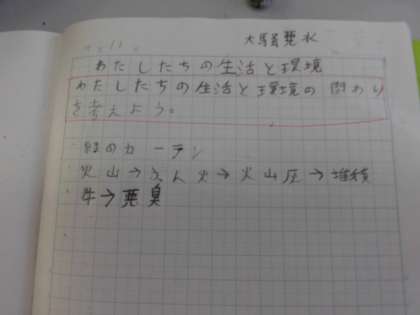 わたしたちの生活と環境
わたしたちの生活と環境の関わり
を考えよう。
緑のカーテン
火山→ふん火→火山灰→堆積
牛→悪臭